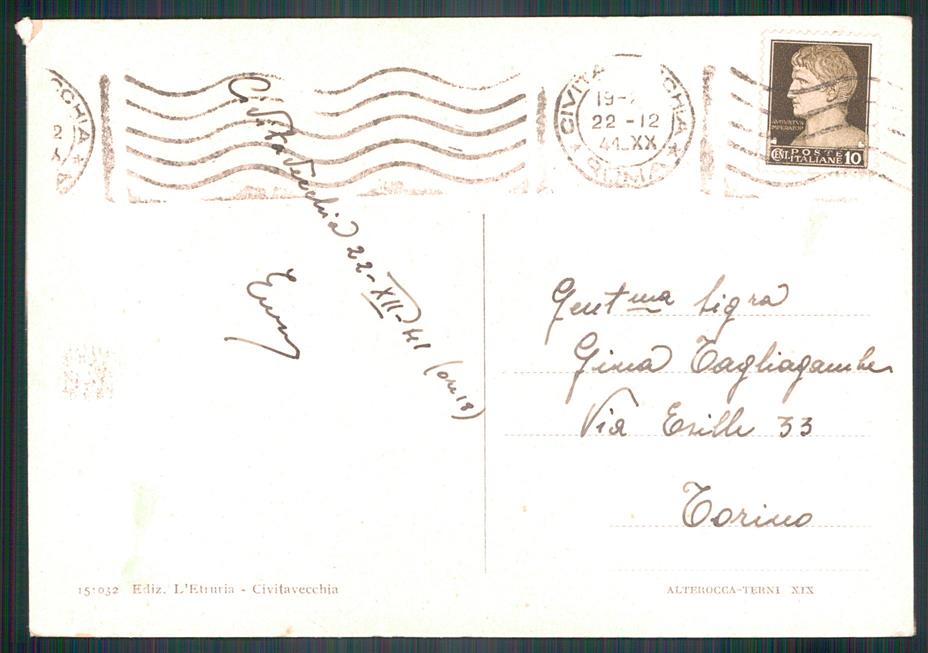 CCHIA
CIVITAVECCHIA
19-
22 - 12
41.XX
ROMA
AVGVSTVS
IMPERATOR
CENT. POSTE ITALIANE 10
Civitavecchia 22-XII-41 (ore 18)
Gent ma Sigra
Gina Tagliagambe
Via Esille 33
Torino
151032 Ediz. L'Etruria - Civitavecchia
ALTEROCCA-TERNI XIX